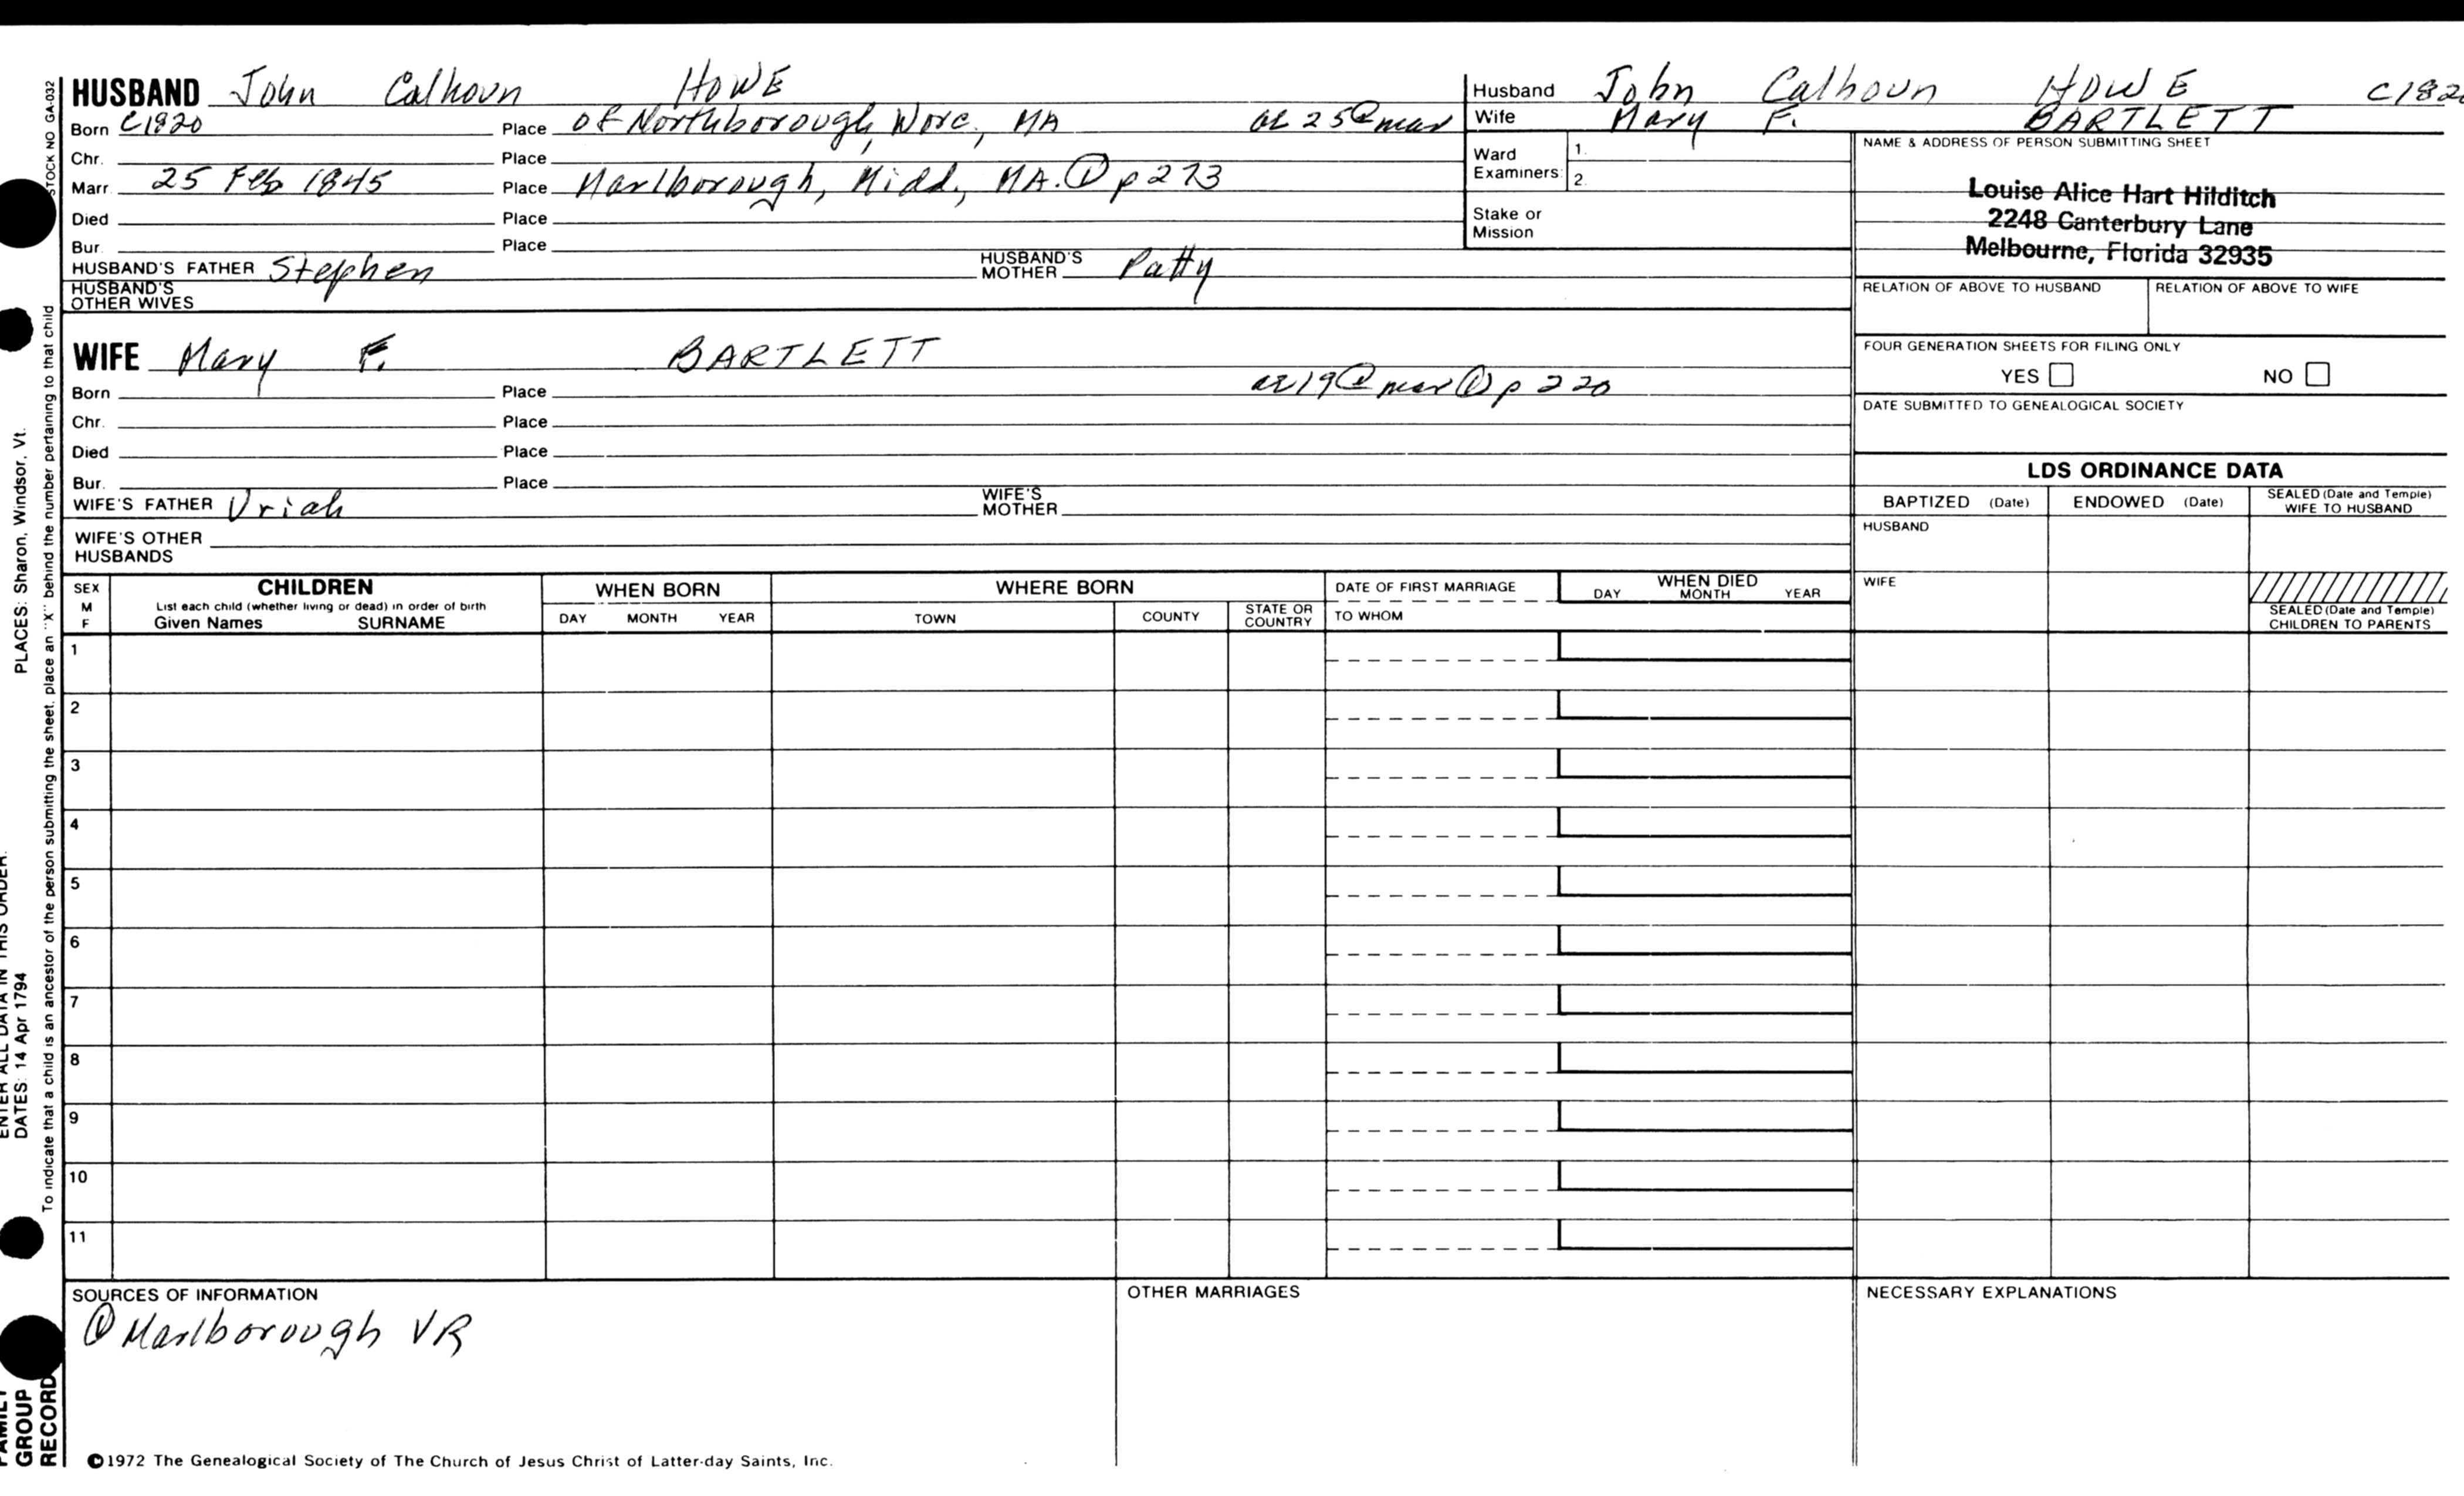 HUSBAND John Calhoun HOWE
Born C1820 Place of Northborough, Worc., MA ae 25@mar
Chr. Place
Marr. 25 Feb 1845 Place Marlborough, Midd., MA. ① p273
Died Place
Bur. Place
HUSBAND'S FATHER Stephen HUSBAND'S MOTHER Patty
HUSBAND'S OTHER WIVES
Husband John Calhoun HOWE C182
Wife Mary F. BARTLETT
Ward Examiners: 1.
2.
Stake or Mission
NAME & ADDRESS OF PERSON SUBMITTING SHEET
Louise Alice Hart Hilditch
2248 Canterbury Lane
Melbourne, Florida 32935
RELATION OF ABOVE TO HUSBAND RELATION OF ABOVE TO WIFE
FOUR GENERATION SHEETS FOR FILING ONLY
YES NO
DATE SUBMITTED TO GENEALOGICAL SOCIETY
WIFE Mary F. BARTLETT
Born Place ae 19@mar ① p 220
Chr. Place
Died Place
Bur. Place
WIFE'S FATHER Uriah WIFE'S MOTHER
WIFE'S OTHER HUSBANDS
LDS ORDINANCE DATA
BAPTIZED (Date) ENDOWED (Date) SEALED (Date and Temple) WIFE TO HUSBAND
HUSBAND
WIFE
SEALED (Date and Temple) CHILDREN TO PARENTS
SEX M F
CHILDREN
List each child (whether living or dead) in order of birth
Given Names SURNAME
WHEN BORN
DAY MONTH YEAR
WHERE BORN
TOWN COUNTY STATE OR COUNTRY
DATE OF FIRST MARRIAGE
TO WHOM
WHEN DIED
DAY MONTH YEAR
1
2
3
4
5
6
7
8
9
10
11
SOURCES OF INFORMATION
① Marlborough VR
OTHER MARRIAGES
NECESSARY EXPLANATIONS
©1972 The Genealogical Society of The Church of Jesus Christ of Latter-day Saints, Inc.
STOCK NO GA-032
To indicate that a child is an ancestor of the person submitting the sheet, place an "X" behind the number pertaining to that child
PLACES: Sharon, Windsor, Vt.
ENTER ALL DATA IN THIS ORDER:
DATES: 14 Apr 1794
FAMILY
GROUP
RECORD